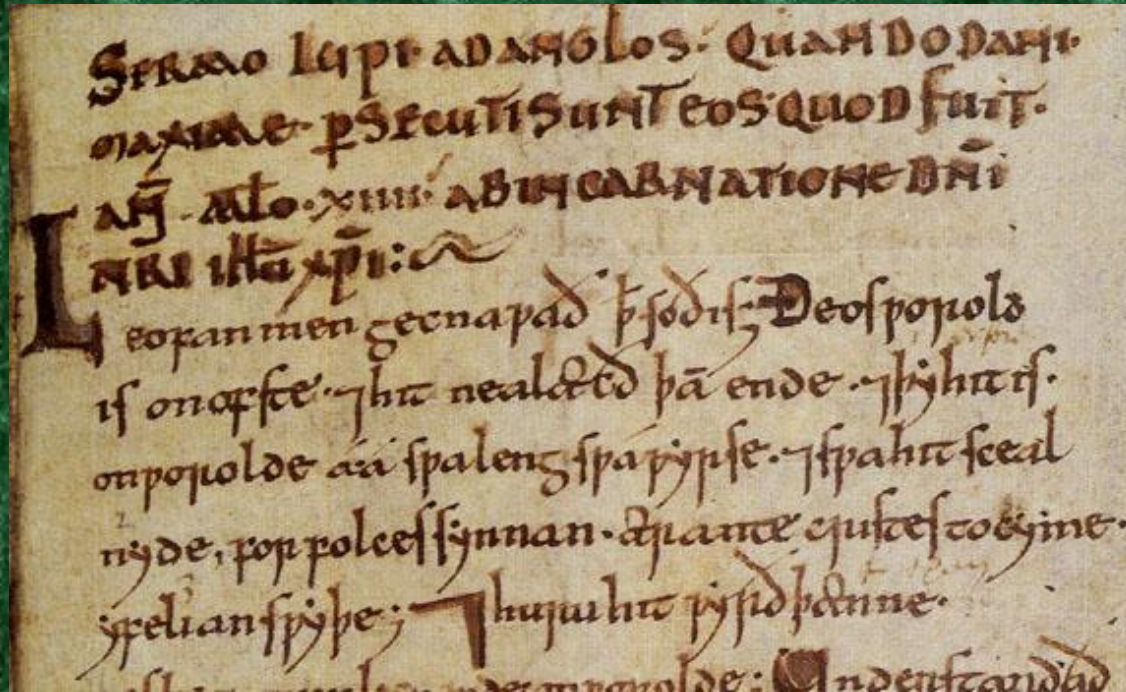 SERMO LUPI· AD ANGLOS· QUANDO DANI·
MAXIME· ꝑSECUTI SUNT EOS· QUOD FUIT·
AÑ · M̅L̅o· XIIII· AB INCARNATIONE DN̅I
NR̅I IHU̅ XP̅I:
Leofan men gecnapað ꝥ soð is; Ðeos ƿorold
is on ofste· ⁊ hit nealæcð þā ende· ⁊ þẏ hit is·
on ƿorolde áá sƿa leng sƿa ƿẏrse· ⁊ sƿa hit sceal
nẏde, for folces sẏnnan· ær antecristes tocẏme·
ẏfelian sƿẏþe; ⁊ huru hit ƿẏrð þænne·
on ƿorolde; Understandað